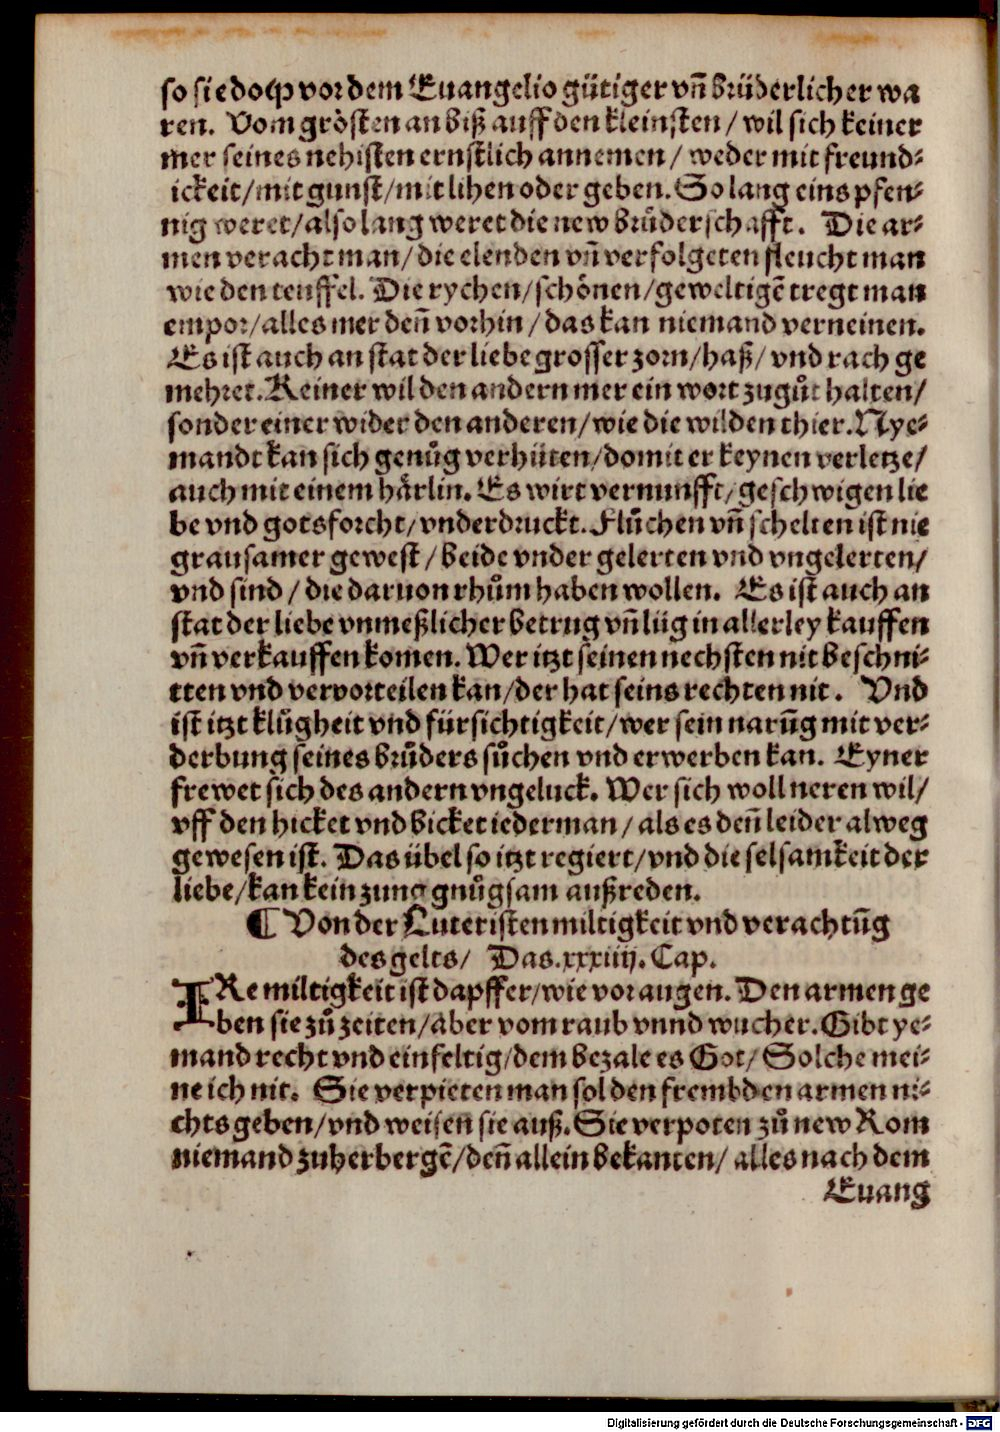 so sie doch vor dem Euangelio gütiger vñ brüderlicher wa
ren. Vom grösten an biß auff den kleinsten / wil sich keiner
mer seines nehisten ernstlich annemen / weder mit freund⸗
ickeit/mit gunst/mit lihen oder geben. So lang eins pfen⸗
nig weret/also lang weret die new brůderschafft. Die ar⸗
men veracht man/die elenden vñ verfolgeten fleucht man
wie den teuffel. Die rychen/schönen/geweltigẽ tregt man
empor/alles mer deñ vorhin / das kan niemand verneinen.
Es ist auch an stat der liebe grosser zorn/haß/ vnd rach ge
mehret. Keiner wil den andern mer ein wort zugůt halten/
sonder einer wider den anderen/wie die wilden thier. Nye⸗
mandt kan sich genůg verhüten/domit er keynen verletze/
auch mit einem härlin. Es wirt vernunfft/geschwigen lie
be vnd gotsforcht/vnderdruckt. Flůchen vñ schelten ist nie
grausamer gewest / beide vnder gelerten vnd vngelerten/
vnd sind / die daruon rhům haben wollen. Es ist auch an
stat der liebe vnmeßlicher betrug vñ lüg in allerley kauffen
vñ verkauffen komen. Wer itzt seinen nechsten nit beschni⸗
tten vnd vervorteilen kan/der hat seins rechten nit. Vnd
ist itzt klůgheit vnd fürsichtigkeit/wer sein narũg mit ver⸗
derbung seines brůders sůchen vnd erwerben kan. Eyner
frewet sich des andern vngeluck. Wer sich woll neren wil/
vff den hicket vnd bicket iederman / als es deñ leider alweg
gewesen ist. Das übel so itzt regiert/vnd die selsamkeit der
liebe/kan kein zung gnůgsam außreden.
¶ Von der Luteristen miltigkeit vnd verachtũg
des gelts/ Das.xxxiiij. Cap.
IRe miltigkeit ist dapffer/wie vor augen. Den armen ge
ben sie zů zeiten/aber vom raub vnnd wucher. Gibt ye⸗
mand recht vnd einfeltig/dem bezale es Got/ Solche mei⸗
ne ich nit. Sie verpieten man sol den frembden armen ni⸗
chts geben/vnd weisen sie auß. Sie verpoten zů new Rom
niemand zuherbergẽ/deñ allein bekanten/ alles nach dem
Euang
Digitalisierung gefördert durch die Deutsche Forschungsgemeinschaft - DFG